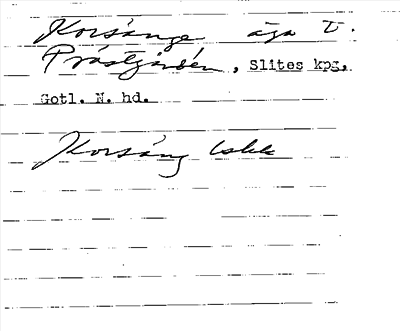 Korsänge äga t.
Prästgården, Slites kpg,
Gotl. N. hd.
Korsäng